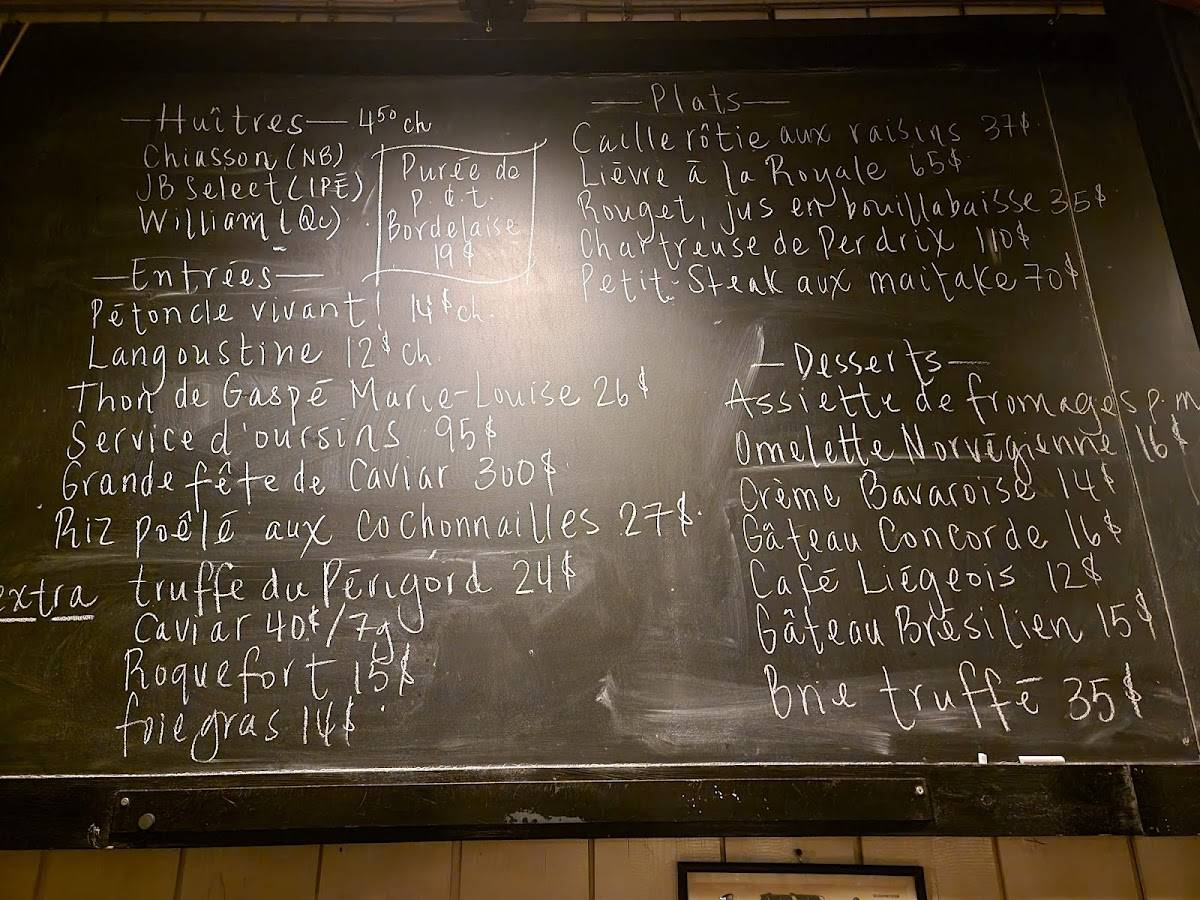 —Huîtres— 4⁵⁰ ch
Chiasson (NB)
JB Select (IPÉ)
William (Qc)
Purée de
p.d.t.
Bordelaise
19$
—Entrées—
Pétoncle vivant! 14$ ch.
Langoustine 12$ ch.
Thon de Gaspé Marie-Louise 26$
Service d'oursins 95$
Grande fête de Caviar 300$
Riz poêlé aux cochonnailles 27$
extra truffe du Périgord 24$
Caviar 40$/7g
Roquefort 15$
foie gras 14$
—Plats—
Caille rôtie aux raisins 37$
Lièvre à la Royale 65$
Rouget, jus en bouillabaisse 35$
Chartreuse de Perdrix 110$
Petit-Steak aux maitake 70$
—Desserts—
Assiette de fromages p.m
Omelette Norvégienne 16$
Crème Bavaroise 14$
Gâteau Concorde 16$
Café Liégeois 12$
Gâteau Brésilien 15$
Brie truffé 35$